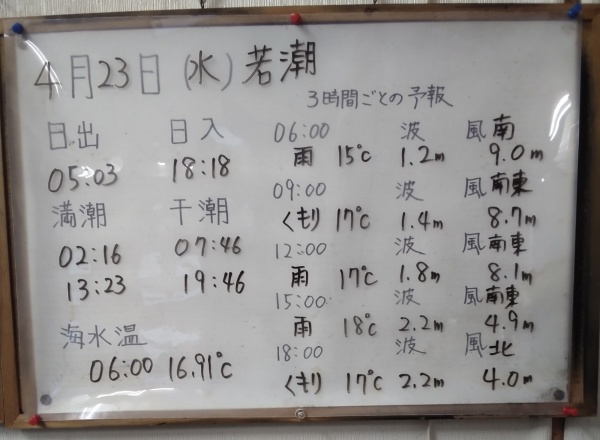 4月23日(水)若潮
3時間ごとの予報
日出 日入
05:03 18:18
満潮 干潮
02:16 07:46
13:23 19:46
海水温
06:00 16.91℃
06:00 波 風南
雨 15℃ 1.2m 9.0m
09:00 波 風南東
くもり 17℃ 1.4m 8.7m
12:00 波 風南東
雨 17℃ 1.8m 8.1m
15:00 波 風南東
雨 18℃ 2.2m 4.9m
18:00 波 風北
くもり 17℃ 2.2m 4.0m